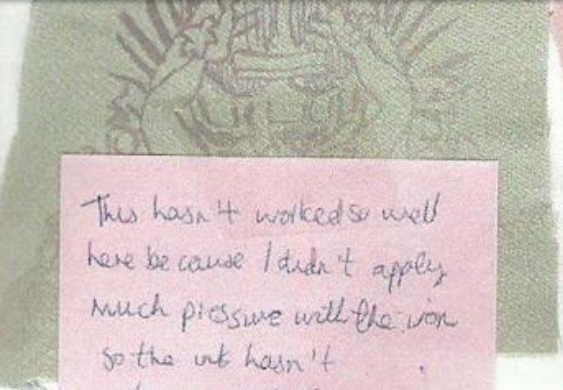 This hasn't worked so well
here because I didn't apply
much pressure with the iron
so the ink hasn't